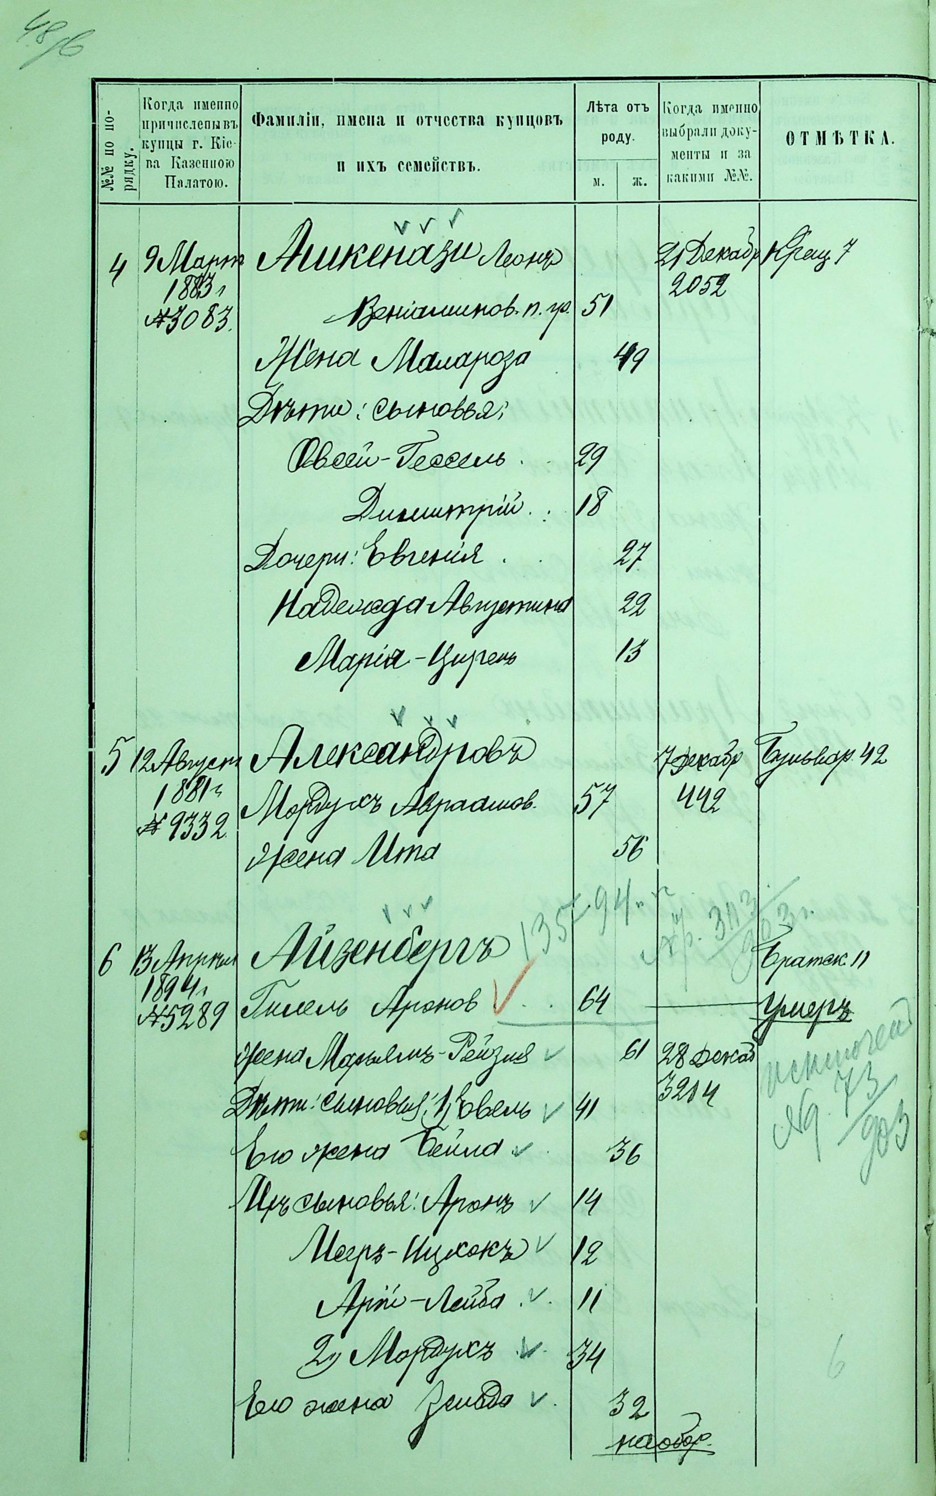 48 об
№№ по по-
рядку.
Когда именно
причислены въ
купцы г. Кіе-
ва Казенною
Палатою.
Фамиліи, имена и отчества купцовъ
и ихъ семействъ.
Лѣта отъ
роду.
м. ж.
Когда именно
выбрали доку-
менты и за
какими №№.
ОТМѢТКА.
4 9 Март Ашкенази Леонъ 21 Декабр Крещ 7
1883 г 2052
№3083. Веніаминов. п. гр. 51
Жена Малароза 49
Дѣти: сыновья:
Овсей-Гессель 29
Димитрій 18
Дочери: Евгенія 27
Надежда Августина 22
Марія- 13
5 12 Август Александровъ 7 декабр Бульвар. 42
1881 г 442
№ 9332 Мордухъ Авраамов. 57
жена Ита 56
135 94
313
903 г.
6 13 Апрѣля Айзенбергъ Братск 11
1894 г
№5289 Гилель Аронов 64 умеръ
жена Марьямъ-Рейзия 61 28 Декаб
3204
исключен
№ 73
903
Дѣти: сыновья: 1) Іовель 41
Его жена Бейла 36
Ихъ сыновья: Аронъ 14
Мееръ-Ицхокъ 12
Арій-Лейба 11
2) Мордухъ 34
6
Его жена Зельда 32
на обор.